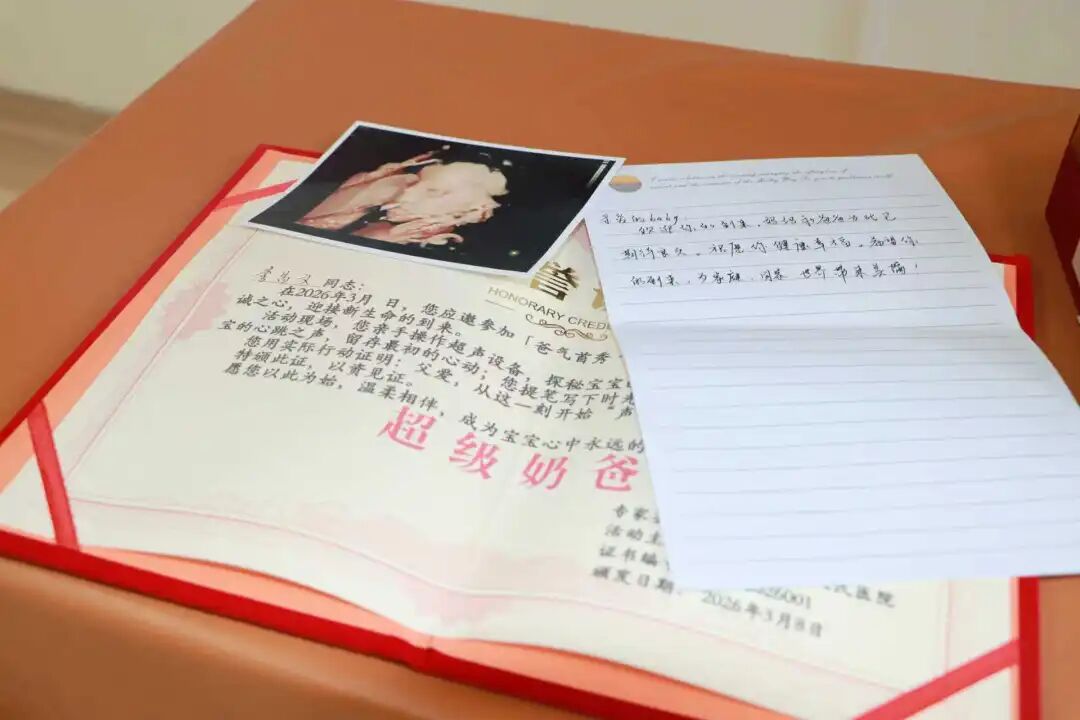 誉
HONORARY CREDE
同志：
在2026年3月 日，您应邀参加「爸气首秀
诚之心，迎接新生命的到来。
活动现场，您亲手操作超声设备，探秘宝宝
宝的心跳之声，留存最初的心动；您提笔写下时光
您用实际行动证明：父爱，从这一刻开始“声
特颁此证，以资见证。
愿您以此为始，温柔相伴，成为宝宝心中永远的
超级奶爸
专家
活动主
证书编
民医院
26001
颁发日期： 2026年3月8日
baby：
欢迎你的到来，妈妈和爸爸为此已
期待很久。祝愿你健康幸福。希望你
的到来，为家庭、 世界带来美满！